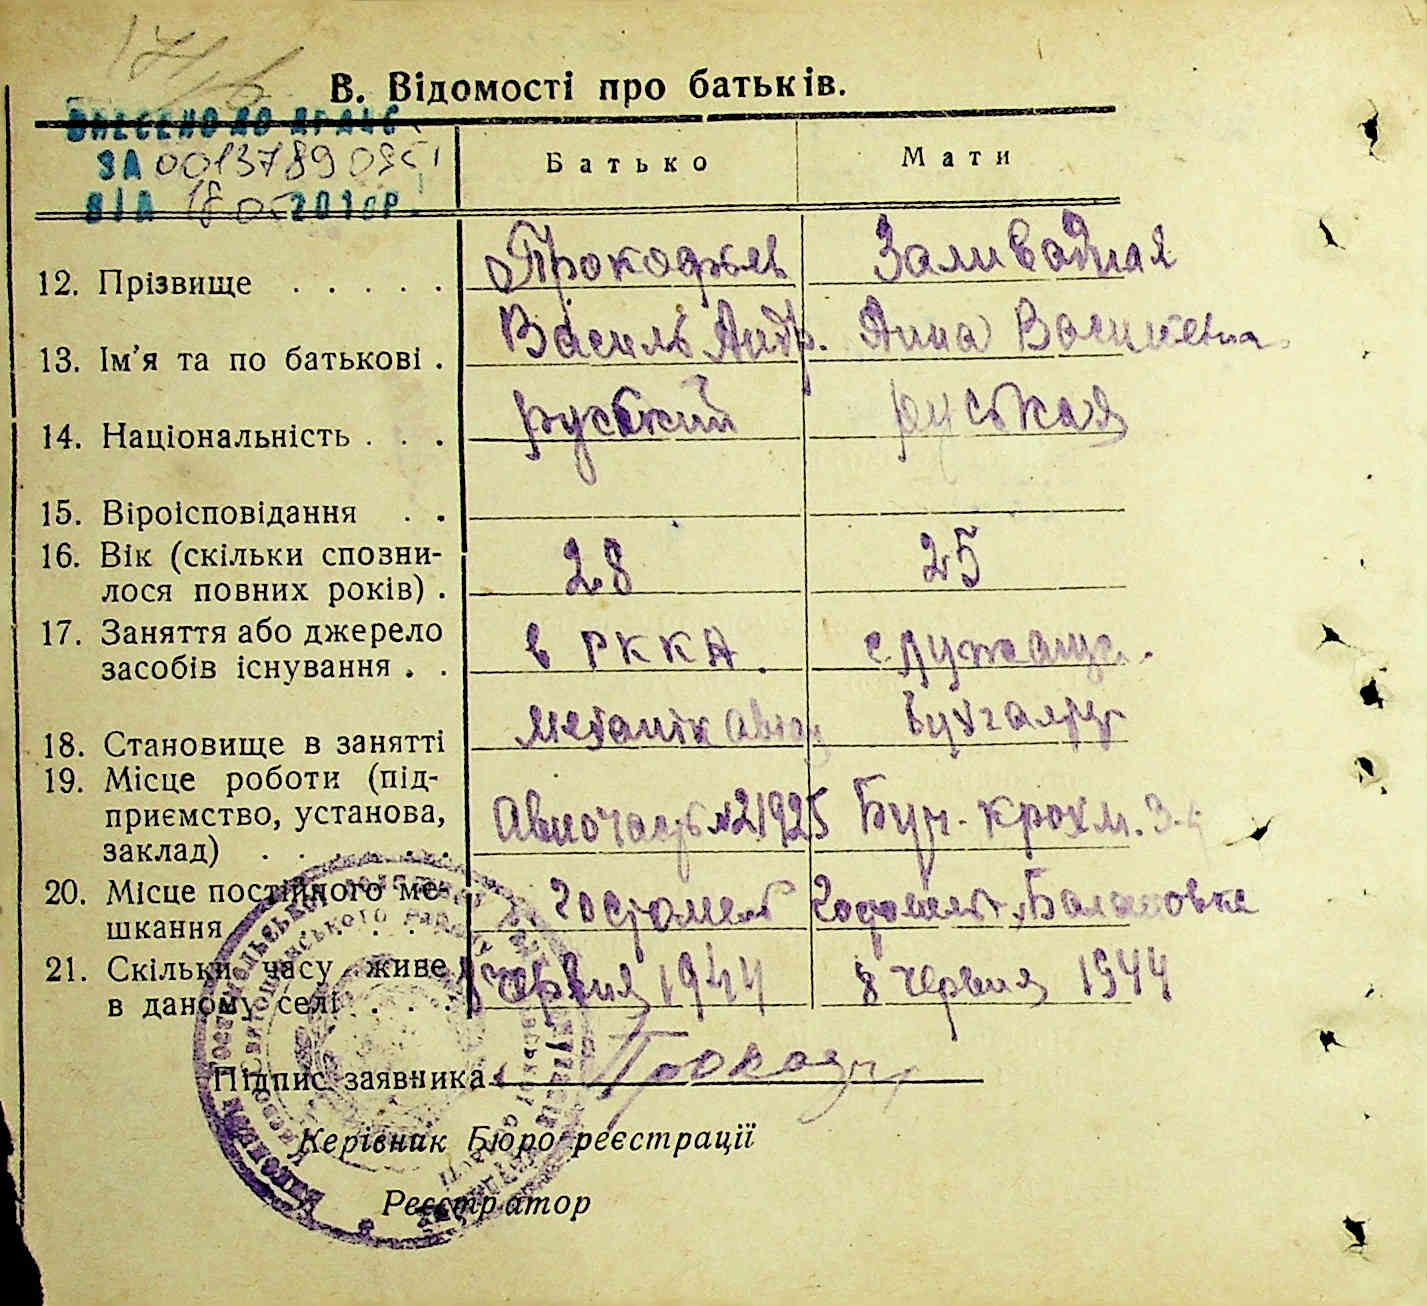 В. Відомості про батьків.
ВНЕСЕНО ДО ДРАЦС
ЗА 0013789
ВІД 18 201 Р.
Батько Мати
12. Прізвище . . . . . Прокофьев Заливадная
13. Ім’я та по батькові . Василь Андр. Анна Василевна
14. Національність . . . руський руськая
15. Віроісповідання . .
16. Вік (скільки спозни-
лося повних років) . 28 25
17. Заняття або джерело
засобів існування . . в РККА. служащ.
18. Становище в занятті Механік авиац бухгалтер
19. Місце роботи (під-
приємство, установа,
заклад) . . . . . . Авиочасть №21925 Буч. крохм. З-д
20. Місце постійного ме-
шкання . . . . . Гостомель Гостомель,
21. Скільки часу живе
в даному селі . . . 8 червня 1944 8 червня 1944
Підпис заявника
Керівник Бюро реєстрації
Реєстратор